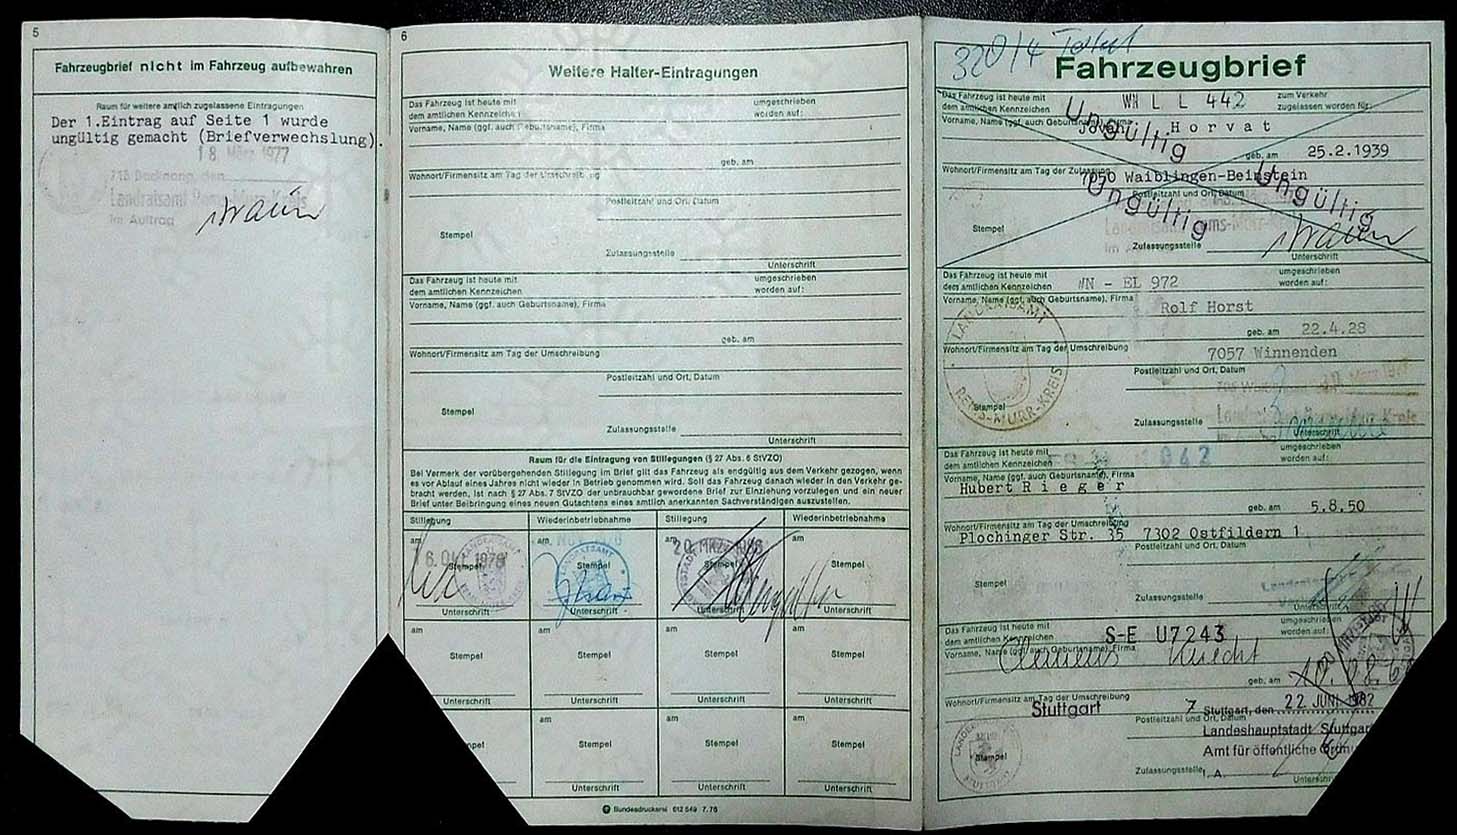 5
Fahrzeugbrief nicht im Fahrzeug aufbewahren
Raum für weitere amtlich zugelassene Eintragungen
Der 1.Eintrag auf Seite 1 wurde
ungültig gemacht (Briefverwechslung).
18. März 1977
715 Backnang, den
Landratsamt Rems-Murr-Kreis
Im Auftrag
6
Weitere Halter-Eintragungen
Das Fahrzeug ist heute mit
dem amtlichen Kennzeichen
umgeschrieben
worden auf:
Vorname, Name (ggf. auch Geburtsname), Firma
geb. am
Wohnort/Firmensitz am Tag der Umschreibung
Postleitzahl und Ort, Datum
Stempel
Zulassungsstelle
Unterschrift
Das Fahrzeug ist heute mit
dem amtlichen Kennzeichen
umgeschrieben
worden auf:
Vorname, Name (ggf. auch Geburtsname), Firma
geb. am
Wohnort/Firmensitz am Tag der Umschreibung
Postleitzahl und Ort, Datum
Stempel
Zulassungsstelle
Unterschrift
Raum für die Eintragung von Stillegungen (§ 27 Abs. 6 StVZO)
Bei Vermerk der vorübergehenden Stillegung im Brief gilt das Fahrzeug als endgültig aus dem Verkehr gezogen, wenn
es vor Ablauf eines Jahres nicht wieder in Betrieb genommen wird. Soll das Fahrzeug danach wieder in den Verkehr ge-
bracht werden, ist nach § 27 Abs. 7 StVZO der unbrauchbar gewordene Brief zur Einziehung vorzulegen und ein neuer
Brief unter Beibringung eines neuen Gutachtens eines amtlich anerkannten Sachverständigen auszustellen.
Stillegung Wiederinbetriebnahme Stillegung Wiederinbetriebnahme
am am am am
20. MRZ. 1986
Stempel Stempel Stempel Stempel
Unterschrift Unterschrift Unterschrift Unterschrift
am am am am
Stempel Stempel Stempel Stempel
Unterschrift Unterschrift Unterschrift Unterschrift
am am am
Stempel Stempel Stempel
Unterschrift Unterschrift
Bundesdruckerei 612 549 7.76
320/4
Fahrzeugbrief
Das Fahrzeug ist heute mit
dem amtlichen Kennzeichen
WN L L 442
zum Verkehr
zugelassen worden für:
Vorname, Name (ggf. auch Geburtsname), Firma
Horvat
Ungültig
geb. am 25.2.1939
Wohnort/Firmensitz am Tag der Zulassung
7050 Waiblingen-Beinstein
Postleitzahl und Ort, Datum
Ungültig
Ungültig
Stempel
Zulassungsstelle
Unterschrift
Das Fahrzeug ist heute mit
dem amtlichen Kennzeichen
WN - EL 972
umgeschrieben
worden auf:
Vorname, Name (ggf. auch Geburtsname), Firma
Rolf Horst
geb. am 22.4.28
Wohnort/Firmensitz am Tag der Umschreibung
7057 Winnenden
Postleitzahl und Ort, Datum
LANDRATSAMT
REMS-MURR-KREIS
Stempel
Landratsamt Rems-Murr-Kreis
Zulassungsstelle
Unterschrift
Das Fahrzeug ist heute mit
dem amtlichen Kennzeichen
umgeschrieben
worden auf:
Vorname, Name (ggf. auch Geburtsname), Firma
Hubert Rieger
geb. am 5.8.50
Wohnort/Firmensitz am Tag der Umschreibung
Plochinger Str. 35 7302 Ostfildern 1
Postleitzahl und Ort, Datum
Stempel
Zulassungsstelle
Unterschrift
Das Fahrzeug ist heute mit
dem amtlichen Kennzeichen
S-E U7243
umgeschrieben
worden auf:
Vorname, Name (ggf. auch Geburtsname), Firma
Clemens Knecht
geb. am
Wohnort/Firmensitz am Tag der Umschreibung
Stuttgart
7 Stuttgart, den 22. JUNI 1982
Postleitzahl und Ort, Datum
Landeshauptstadt Stuttgar
Amt für öffentliche Ordnu
Stempel
Zulassungsstelle
I. A.
Unterschri